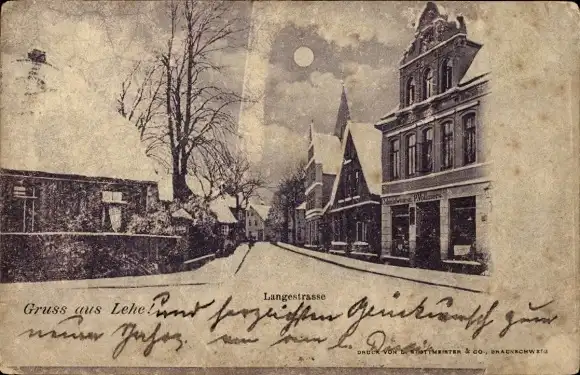 Langestrasse
Gruss aus Lehe! und herzlichen Glückwunsch zum
neuen Jahre.
DRUCK VON & CO., BRAUNSCHWEIG